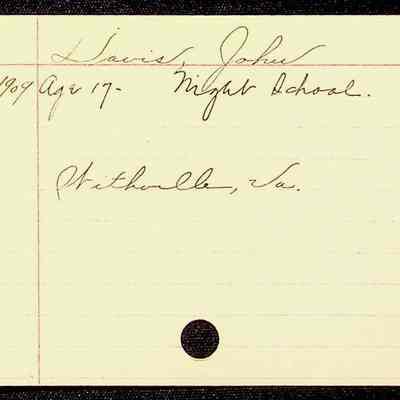 Davis, John
1909 Age 17- Night School.
Withville, Va.